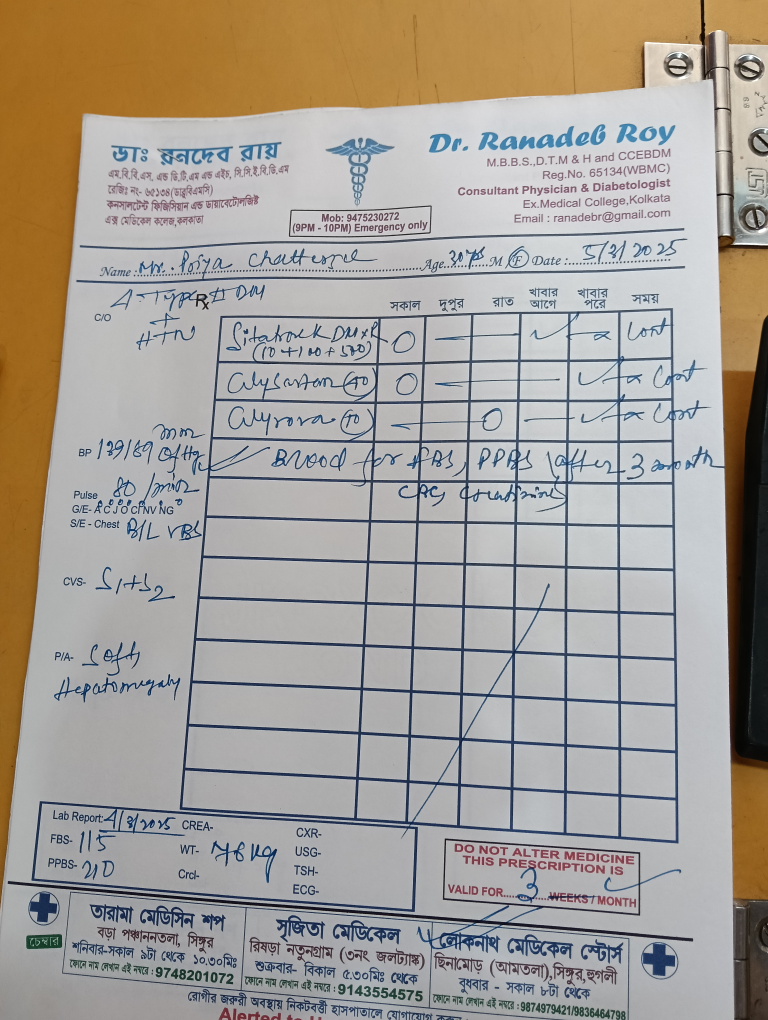 ডাঃ রনদেব রায়
এম.বি.বি.এস. এন্ড ডি.টি.এম এন্ড এইচ, সি.সি.ই.বি.ডি.এম
রেজিঃ নং- ৬৫১৩৪(ডাব্লুবিএমসি)
কনসালটেন্ট ফিজিসিয়ান এন্ড ডায়াবেটোলজিষ্ট
এক্স মেডিকেল কলেজ,কলকাতা
Mob: 9475230272
(9PM - 10PM) Emergency only
Dr. Ranadeb Roy
M.B.B.S.,D.T.M & H and CCEBDM
Reg.No. 65134(WBMC)
Consultant Physician & Diabetologist
Ex.Medical College,Kolkata
Email : ranadebr@gmail.com
Name : Mr. Priya Chatterjee Age 30 yrs M F Date : 5/3/2025
Type II DM
Rx
C/O + HTN
সকাল দুপুর রাত খাবার আগে খাবার পরে সময়
(10+100+500) Cont
(40) Cont
(10) Cont
BP 139/89 mm of Hg
Blood for FBS, PPBS after 3 month
CBC, Creatinine
Pulse 80 /min
G/E- A C J O Cl NV NG
S/E - Chest B/L VBS
CVS- S1+S2
P/A- Soft
Hepatomegaly
Lab Report: 4/3/2025 CREA- CXR-
FBS- 115 WT- 78 kg USG-
PPBS- 210 Crcl- TSH-
ECG-
DO NOT ALTER MEDICINE
THIS PRESCRIPTION IS
VALID FOR 3 WEEKS / MONTH
চেম্বার
তারামা মেডিসিন শপ
বড়া পঞ্চাননতলা, সিঙ্গুর
শনিবার-সকাল ৯টা থেকে ১০.৩০মিঃ
ফোনে নাম লেখান এই নম্বরে : 9748201072
সৃজিতা মেডিকেল
রিষড়া নতুনগ্রাম (৩নং জলট্যাঙ্ক)
শুক্রবার- বিকাল ৫.৩০মিঃ থেকে
ফোনে নাম লেখান এই নম্বরে : 9143554575
লোকনাথ মেডিকেল স্টোর্স
ছিনামোড় (আমতলা),সিঙ্গুর,হুগলী
বুধবার - সকাল ৮টা থেকে
ফোনে নাম লেখান এই নম্বরে : 9874979421/9836464798
রোগীর জরুরী অবস্থায় নিকটবর্ত্তী হাসপাতালে যোগাযোগ
Alerted to